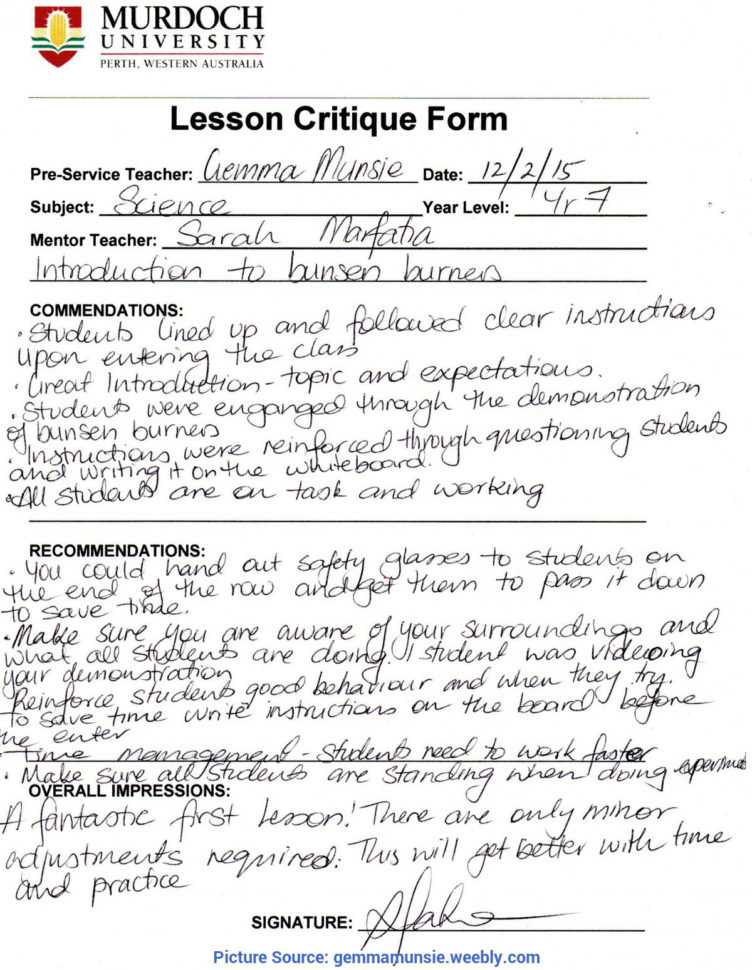 MURDOCH
UNIVERSITY
PERTH, WESTERN AUSTRALIA
Lesson Critique Form
Pre-Service Teacher: Gemma Munsie Date: 12/2/15
Subject: Science Year Level: Yr 7
Mentor Teacher: Sarah Marfatia
Introduction to bunsen burners
COMMENDATIONS:
· Students lined up and followed clear instructions
upon entering the class
· Great Introduction - topic and expectations.
· Students were enganged through the demonstration
of bunsen burners
· Instructions were reinforced through questioning students
and writing it on the whiteboard.
· All students are on task and working
RECOMMENDATIONS:
· You could hand out safety glasses to students on
the end of the row and get them to pass it down
to save time.
· Make sure you are aware of your surroundings and
what all students are doing. 1 student was videoing
your demonstration
Reinforce students good behaviour and when they try.
To save time write instructions on the board before
the enter
Time management - students need to work faster
· Make sure all students are standing when doing experiment
OVERALL IMPRESSIONS:
A fantastic first lesson! There are only minor
adjustments required. This will get better with time
and practice
SIGNATURE:
Picture Source: gemmamunsie.weebly.com